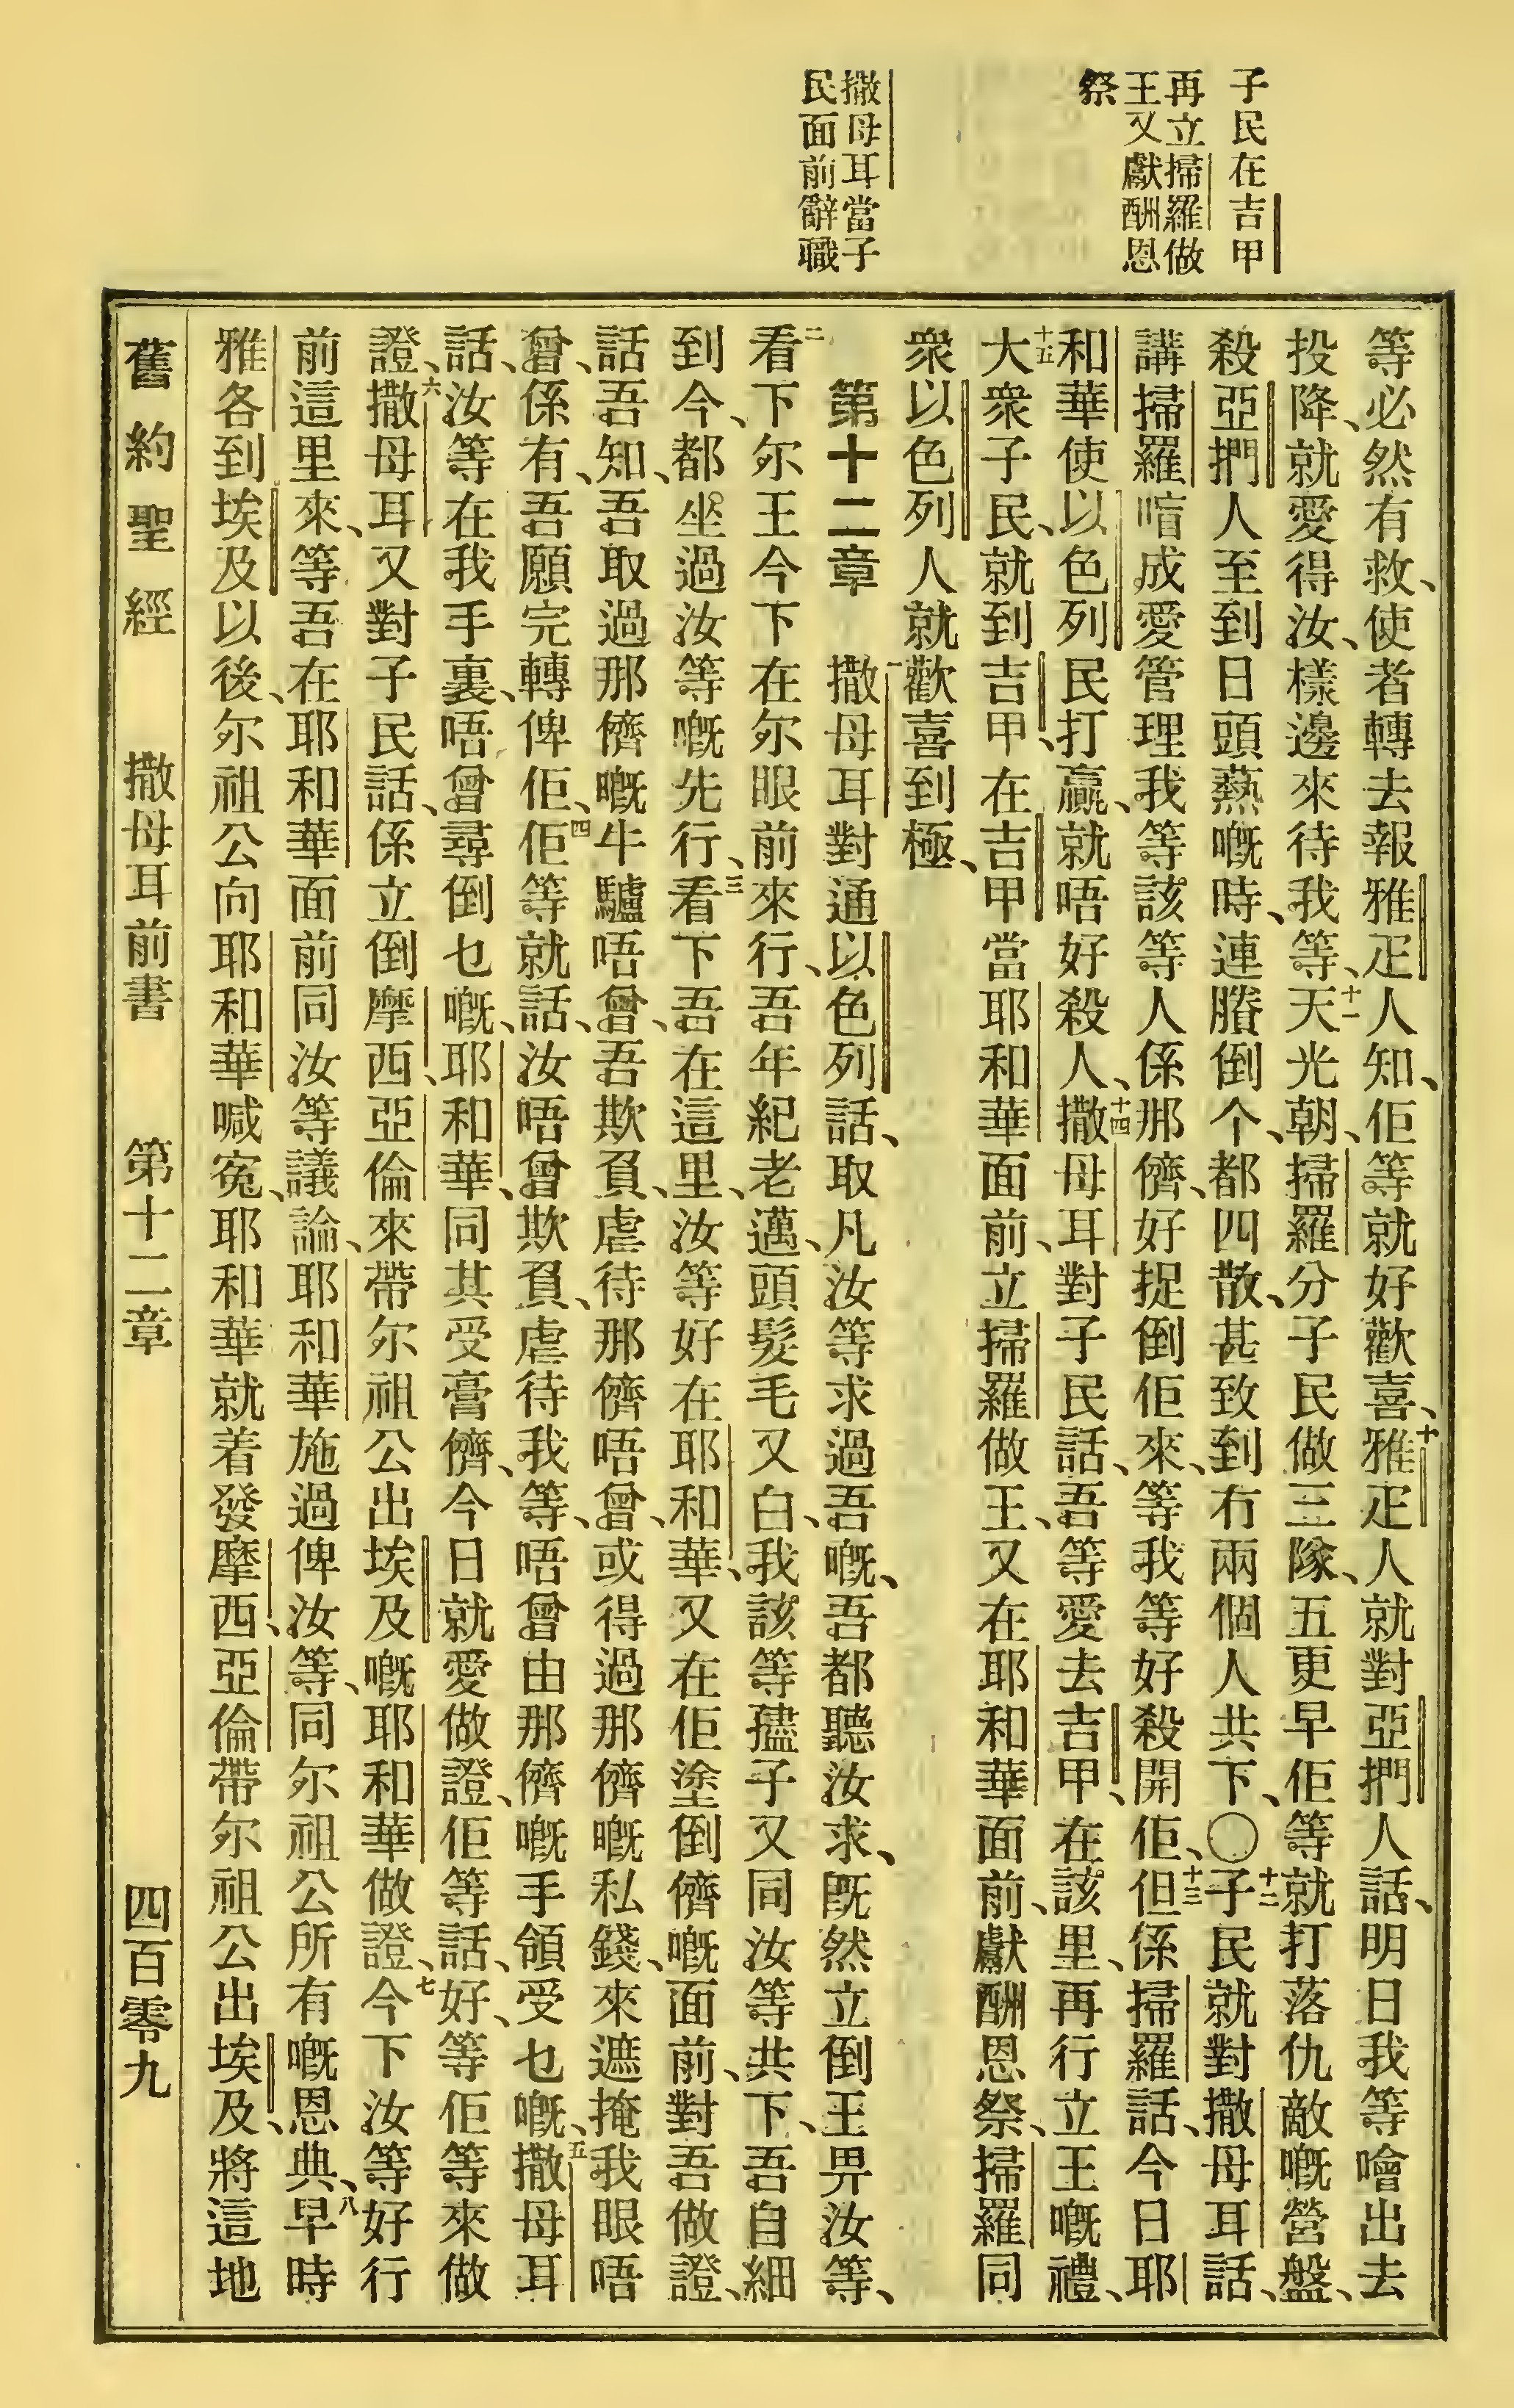 子民在吉甲
再立掃羅做
王又獻酬恩
祭
撒母耳當子
民面前辭職
等必然有救、使者轉去報雅疋人知、佢等就好歡喜、十雅疋人就對亞捫人話、明日我等噲出去
投降、就愛得汝、樣邊來待我等、十一天光朝、掃羅分子民做三隊、五更早佢等就打落仇敵嘅營盤、
殺亞捫人至到日頭𤍠嘅時、連賸倒个、都四散、甚致到冇兩個人共下、〇十二子民就對撒母耳話、
講掃羅喑成愛管理我等該等人係那儕、好捉倒佢來、等我等好殺開佢、十三但係掃羅話、今日耶
和華使以色列民打贏、就唔好殺人、十四撒母耳對子民話、吾等愛去吉甲、在該里、再行立王嘅禮、
十五大衆子民、就到吉甲、在吉甲當耶和華面前、立掃羅做王、又在耶和華面前、獻酬恩祭、掃羅同
衆以色列人就歡喜到極、
第十二章 一撒母耳對通以色列話、取凡汝等求過吾嘅、吾都聽汝求、既然立倒王畀汝等、
二看下尔王今下在尔眼前來行、吾年紀老邁、頭髮毛又白、我該等孻子又同汝等共下、吾自細
到今、都坐過汝等嘅先行、三看下吾在這里、汝等好在耶和華、又在佢塗倒儕嘅面前、對吾做證、
話吾知、吾取過那儕嘅牛驢唔曾、吾欺負、虐待那儕唔曾、或得過那儕嘅私錢、來遮掩我眼唔
曾、係有、吾願完轉俾佢、四佢等就話、汝唔曾欺負、虐待我等、唔曾由那儕嘅手領受乜嘅、五撒母耳
話、汝等在我手裏、唔曾尋倒乜嘅、耶和華、同其受膏儕、今日就愛做證、佢等話、好、等佢等來做
證、六撒母耳又對子民話、係立倒摩西、亞倫來帶尔祖公出埃及嘅耶和華做證、七今下汝等好行
前這里來、等吾在耶和華面前同汝等議論、耶和華施過俾汝等、同尔祖公所有嘅恩典、八早時
雅各到埃及以後、尔祖公向耶和華喊寃、耶和華就着發摩西、亞倫帶尔祖公出埃及、將這地
舊約聖經 撒母耳前書 第十二章 四百零九